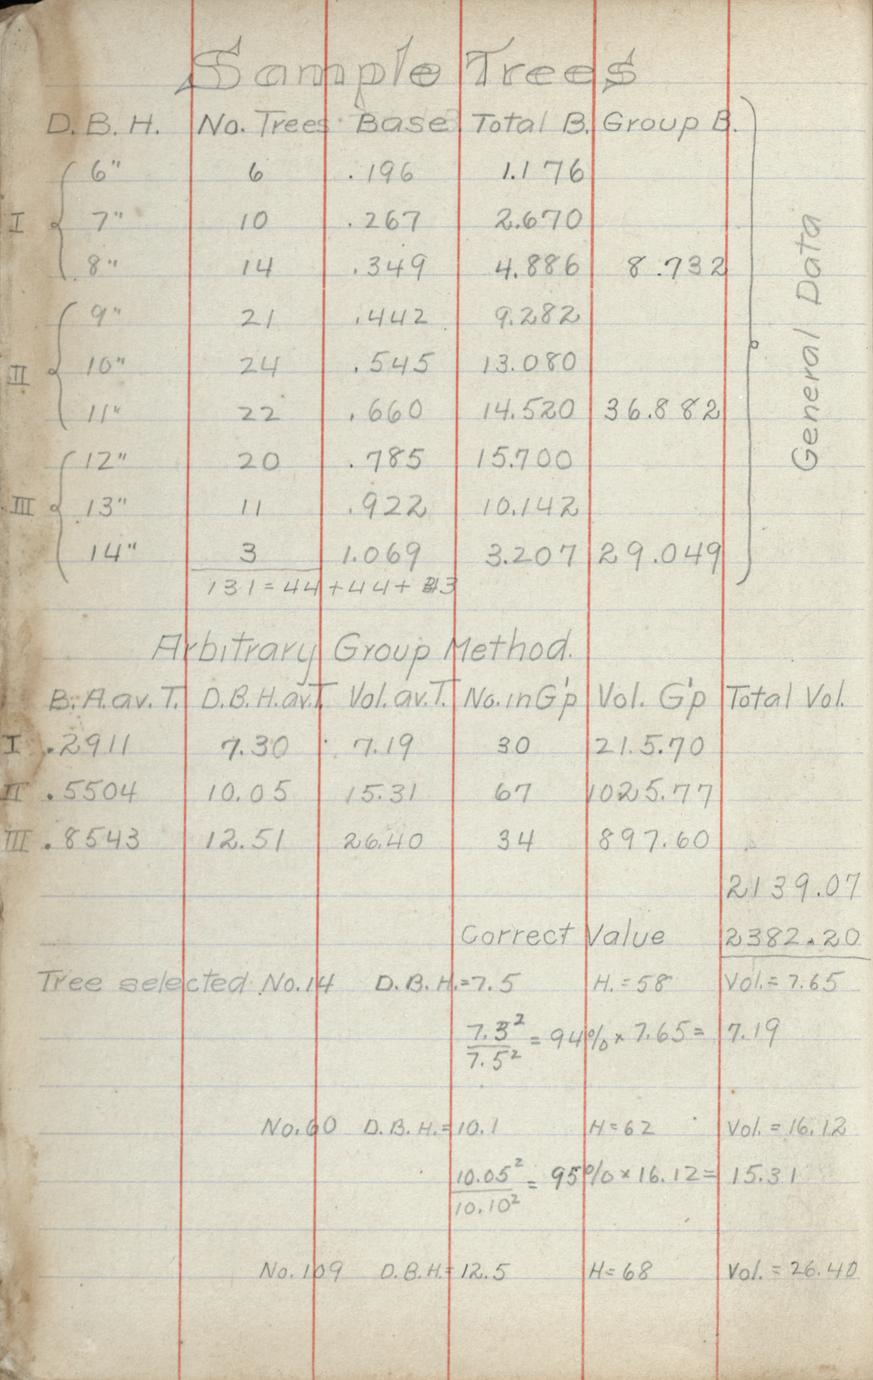 Sample Trees
D. B. H. No. Trees Base Total B. Group B.
6" 6 .196 1.176
I 7" 10 .267 2.670
8" 14 .349 4.886 8.732
9" 21 .442 9.282
II 10" 24 .545 13.080
11" 22 .660 14.520 36.882
12" 20 .785 15.700
III 13" 11 .922 10.142
14" 3 1.069 3.207 29.049
General Data
131 = 44 + 44 + 43
Arbitrary Group Method.
B.A.av.T. D.B.H.av.T. Vol.av.T. No.in G'p Vol. G'p Total Vol.
I .2911 7.30 7.19 30 215.70
II .5504 10.05 15.31 67 1025.77
III .8543 12.51 26.40 34 897.60
2139.07
Correct Value 2382.20
Tree selected No.14 D.B.H.=7.5 H.=58 Vol.=7.65
7.3²/7.5² = 94% × 7.65 = 7.19
No.60 D.B.H.=10.1 H=62 Vol.=16.12
10.05²/10.10² = 95% × 16.12 = 15.31
No.109 D.B.H=12.5 H=68 Vol.=26.40